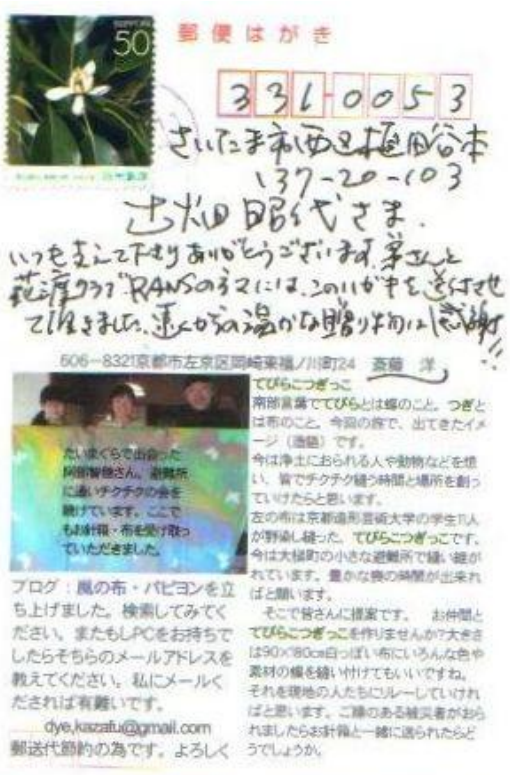 NIPPON
50
郵便はがき
331-0053
さいたま市西区植田谷本
137-20-103
古畑昭代さま
いつも支えて下さりありがとうございます。
クラブRANSの方々には、このハガキを送付させ
て頂きました。 温かな贈り物に感謝!!
606-8321京都市左京区岡崎東福ノ川町24 斎藤 洋
たいまぐらで出会った
阿部智穂さん。避難所
に通いチクチクの会を
続けています。ここで
もお針箱・布を受け取っ
ていただきました。
ブログ:風の布・パピヨンを立
ち上げました。検索してみてく
ださい。またもしPCをお持ちで
したらそちらのメールアドレスを
教えてください。私にメールく
だされば有難いです。
dye,kazafu@gmail.com
郵送代節約の為です。よろしく
てびらこつぎっこ
南部言葉でてびらとは蝶のこと。つぎと
は布のこと。今回の旅で、出てきたイメ
ージ(造語)です。
今は浄土におられる人や動物などを想
い、皆でチクチク縫う時間と場所を創っ
ていけたらと思います。
左の布は京都造形芸術大学の学生11人
が野染し縫った、てびらこつぎっこです。
今は大槌町の小さな避難所で縫い継が
れています。豊かな機の時間が出来れ
ばと願います。
そこで皆さんに提案です。 お仲間と
てびらこつぎっこを作りませんか?大きさ
は90×180cm白っぽい布にいろんな色や
素材の蝶を縫い付けてもいいですね。
それを現地の人たちにリレーしていければ
ばと思います。ご縁のある被災者がおら
れましたらお針箱と一緒に送られたらど
うでしょうか。